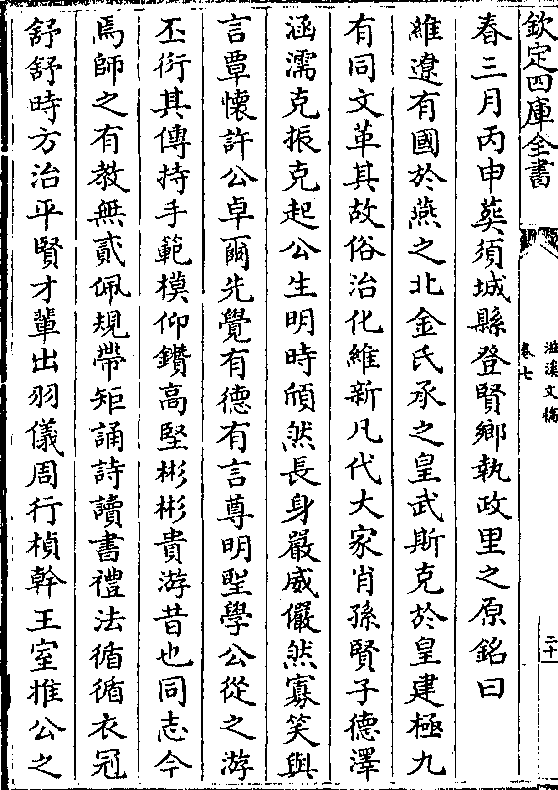 欽定四庫全書
滋溪文稿
卷七
二十
春三月丙申葬須城縣登賢鄉執政里之原銘曰
維遼有國於燕之北金氏承之皇武斯克於皇建極九
有同文革其故俗治化維新凡代大家肖孫賢子德澤
涵濡克振克起公生明時頎然長身嚴威儼然寡笑與
言覃懷許公卓爾先覺有德有言尊明聖學公從之游
丕衍其傳持手範模仰鑽高堅彬彬貴游昔也同志今
焉師之有教無貳佩規帶矩誦詩讀書禮法循循衣冠
舒舒時方治平賢才輩出羽儀周行楨幹王室推公之